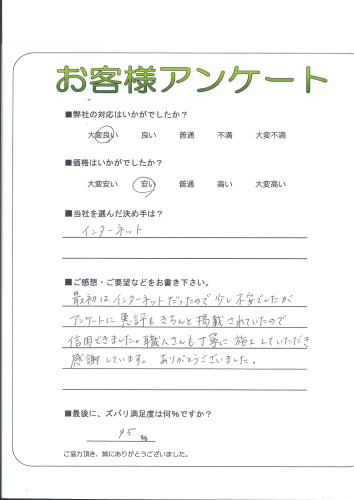 お客様アンケート
■弊社の対応はいかがでしたか?
大変良い 良い 普通 不満 大変不満
■価格はいかがでしたか?
大変安い 安い 普通 高い 大変高い
■当社を選んだ決め手は?
インターネット
■ご感想・ご要望などをお書き下さい。
最初はインターネットだったので少し不安でしたが
アンケートに悪評もきちんと掲載されていたので
信用できました。職人さんも丁寧に施工していただき
感謝しています。ありがとうございました。
■最後に、ズバリ満足度は何%ですか?
95 %
ご協力頂き、誠にありがとうございました。